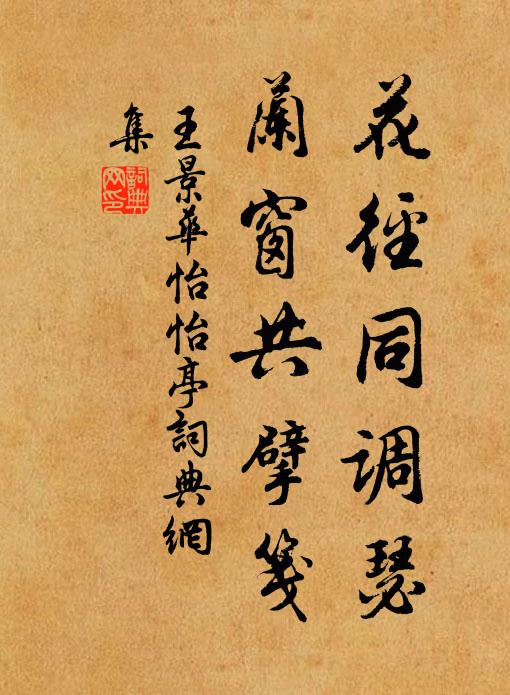 花徑同调瑟
蘭窗共擘箋
王景華怡怡亭詞典網
集
詞典網印